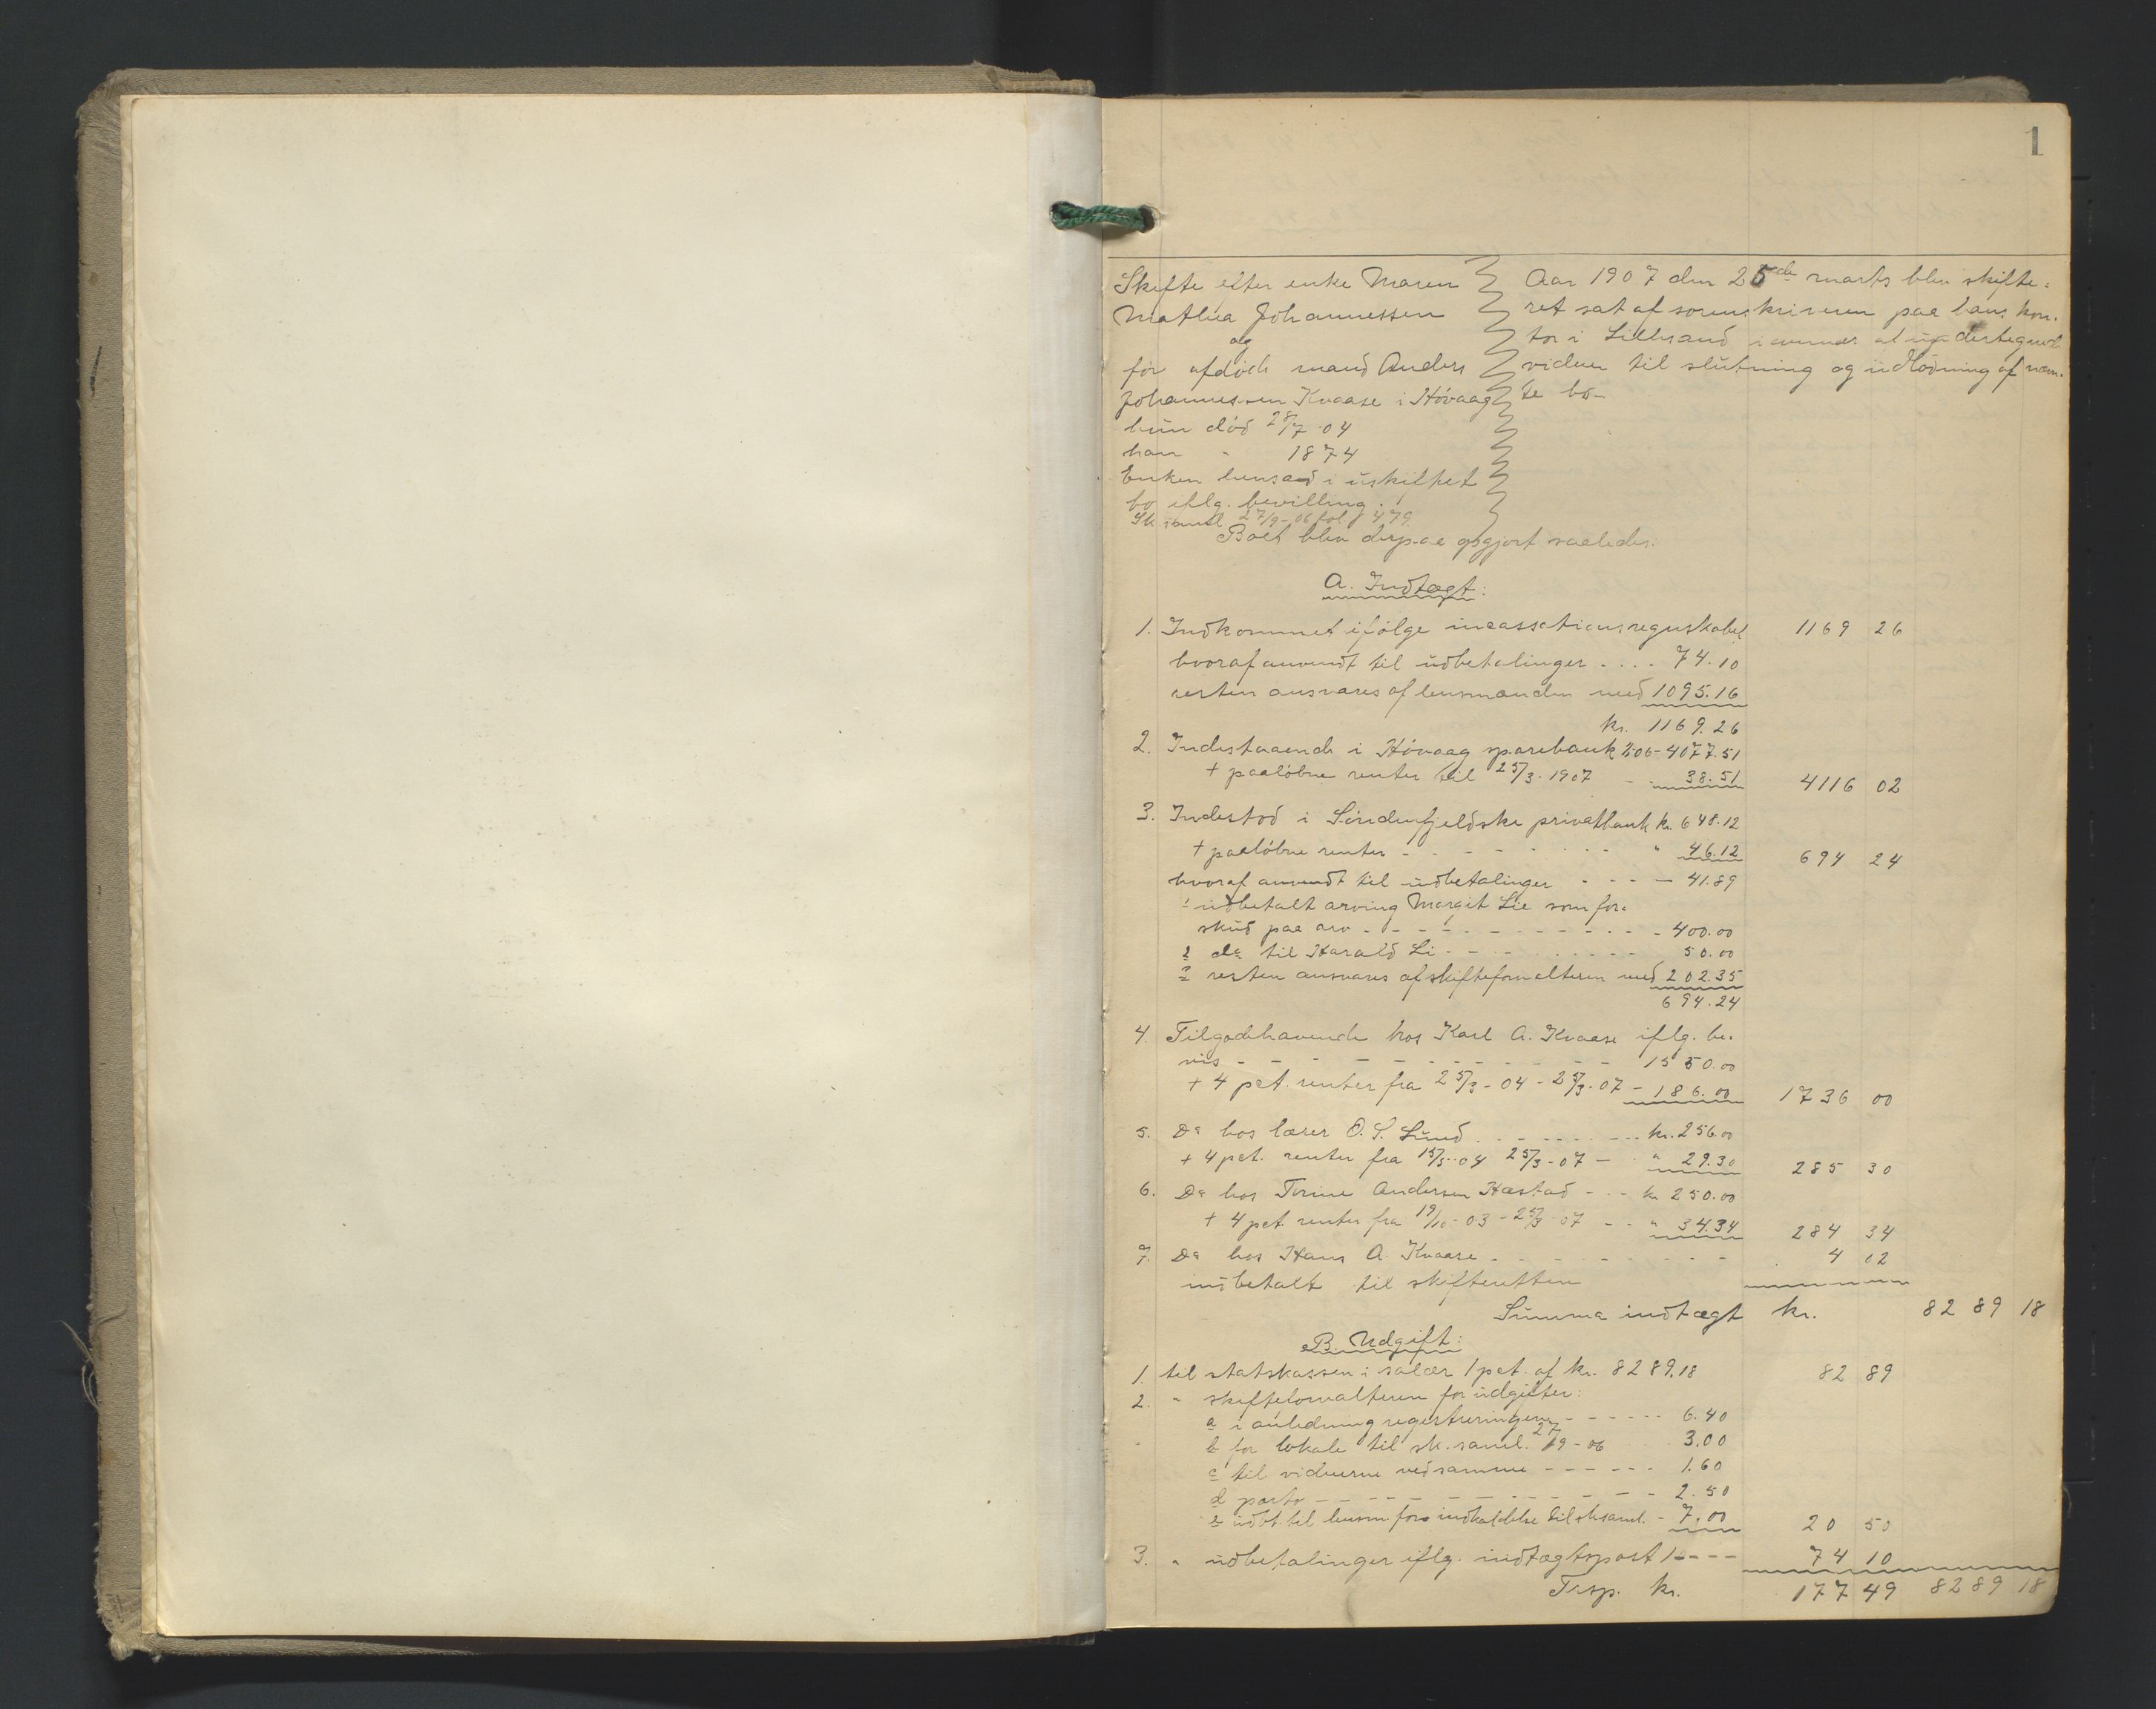 1
Skifte efter enke Maren
Mathea Johannessen
og
før afdøde mand Anders
Johannessen Kvaase i Høvaag
hun død 28/7 04
han - 1874
Enken hensad i uskiftet
bo iflg. bevilling.
Sk. saml. 27/9-06 fol. 479.
Aar 1907 den 25de marts blev skifte-
ret sat af sorenskriveren paa hans kon-
tor i Lillesand i overvær af undertegnede
vidner til slutning og udlodning af næv-
te bo-
Boet blev derpaa opgjort saaledes:
A. Indtægt:
1. Indkommet ifølge incassationsregnskabet 1169 26
hvoraf anvendt til udbetalinger .... 74.10
resten ansvares af lensmanden med 1095.16
kr. 1169.26
2. Indestaaende i Høvaag sparebank 4077.51
+ paaløbne renter til 25/3-1907 - . 38.51 4116 02
3. Indestod i Søndenfjeldske privatbank kr. 648.12
+ paaløbne renter - - - - " 46.12 694 24
hvoraf anvendt til udbetalinger - - - 41.89
1 udbetalt arving Margit Lie som for-
skud paa arv - - - - - 400.00
2 do til Harald Li - - - 50.00
3 resten ansvares af skifteforvalteren med 202.35
694.24
4 Tilgodehavende hos Karl A. Kvaase iflg. be-
vis - - - - - - 1550.00
+ 4 pct. renter fra 25/3-04 - 25/3-07 - 186.00 1736 00
5. Do hos lærer O. S. Lund . - - - kr. 256.00
+ 4 pct. renter fra 15/5-04 25/3-07 - " 29.30 285 30
6. Do hos Terine Andersen Hæstad - - - kr 250.00
+ 4 pct renter fra 19/10-03 - 25/3-07 - - " 34.34 284 34
7. Do hos Hans A. Kvaase - - - - 4 02
indbetalt til skifteretten
Summa indtægt kr. 8289 18
B. Udgift:
1. til statskassen i salær 1 pct. af kr. 8289.18 82 89
2. " skifteforvalteren for udgifter:
a i anledning registreringen - - - - 6.40
b for lokale til sk. saml. 27/9-06 3.00
c til vidnerne ved samme - - - - 1.60
d porto - - - - - 2.50
e udbt. til lensm. for indkaldelse til sk.saml. - 7.00 20 50
3. " udbetalinger iflg. indtægtspost 1 - - - 74 10
Trsp. kr. 177 49 8289 18